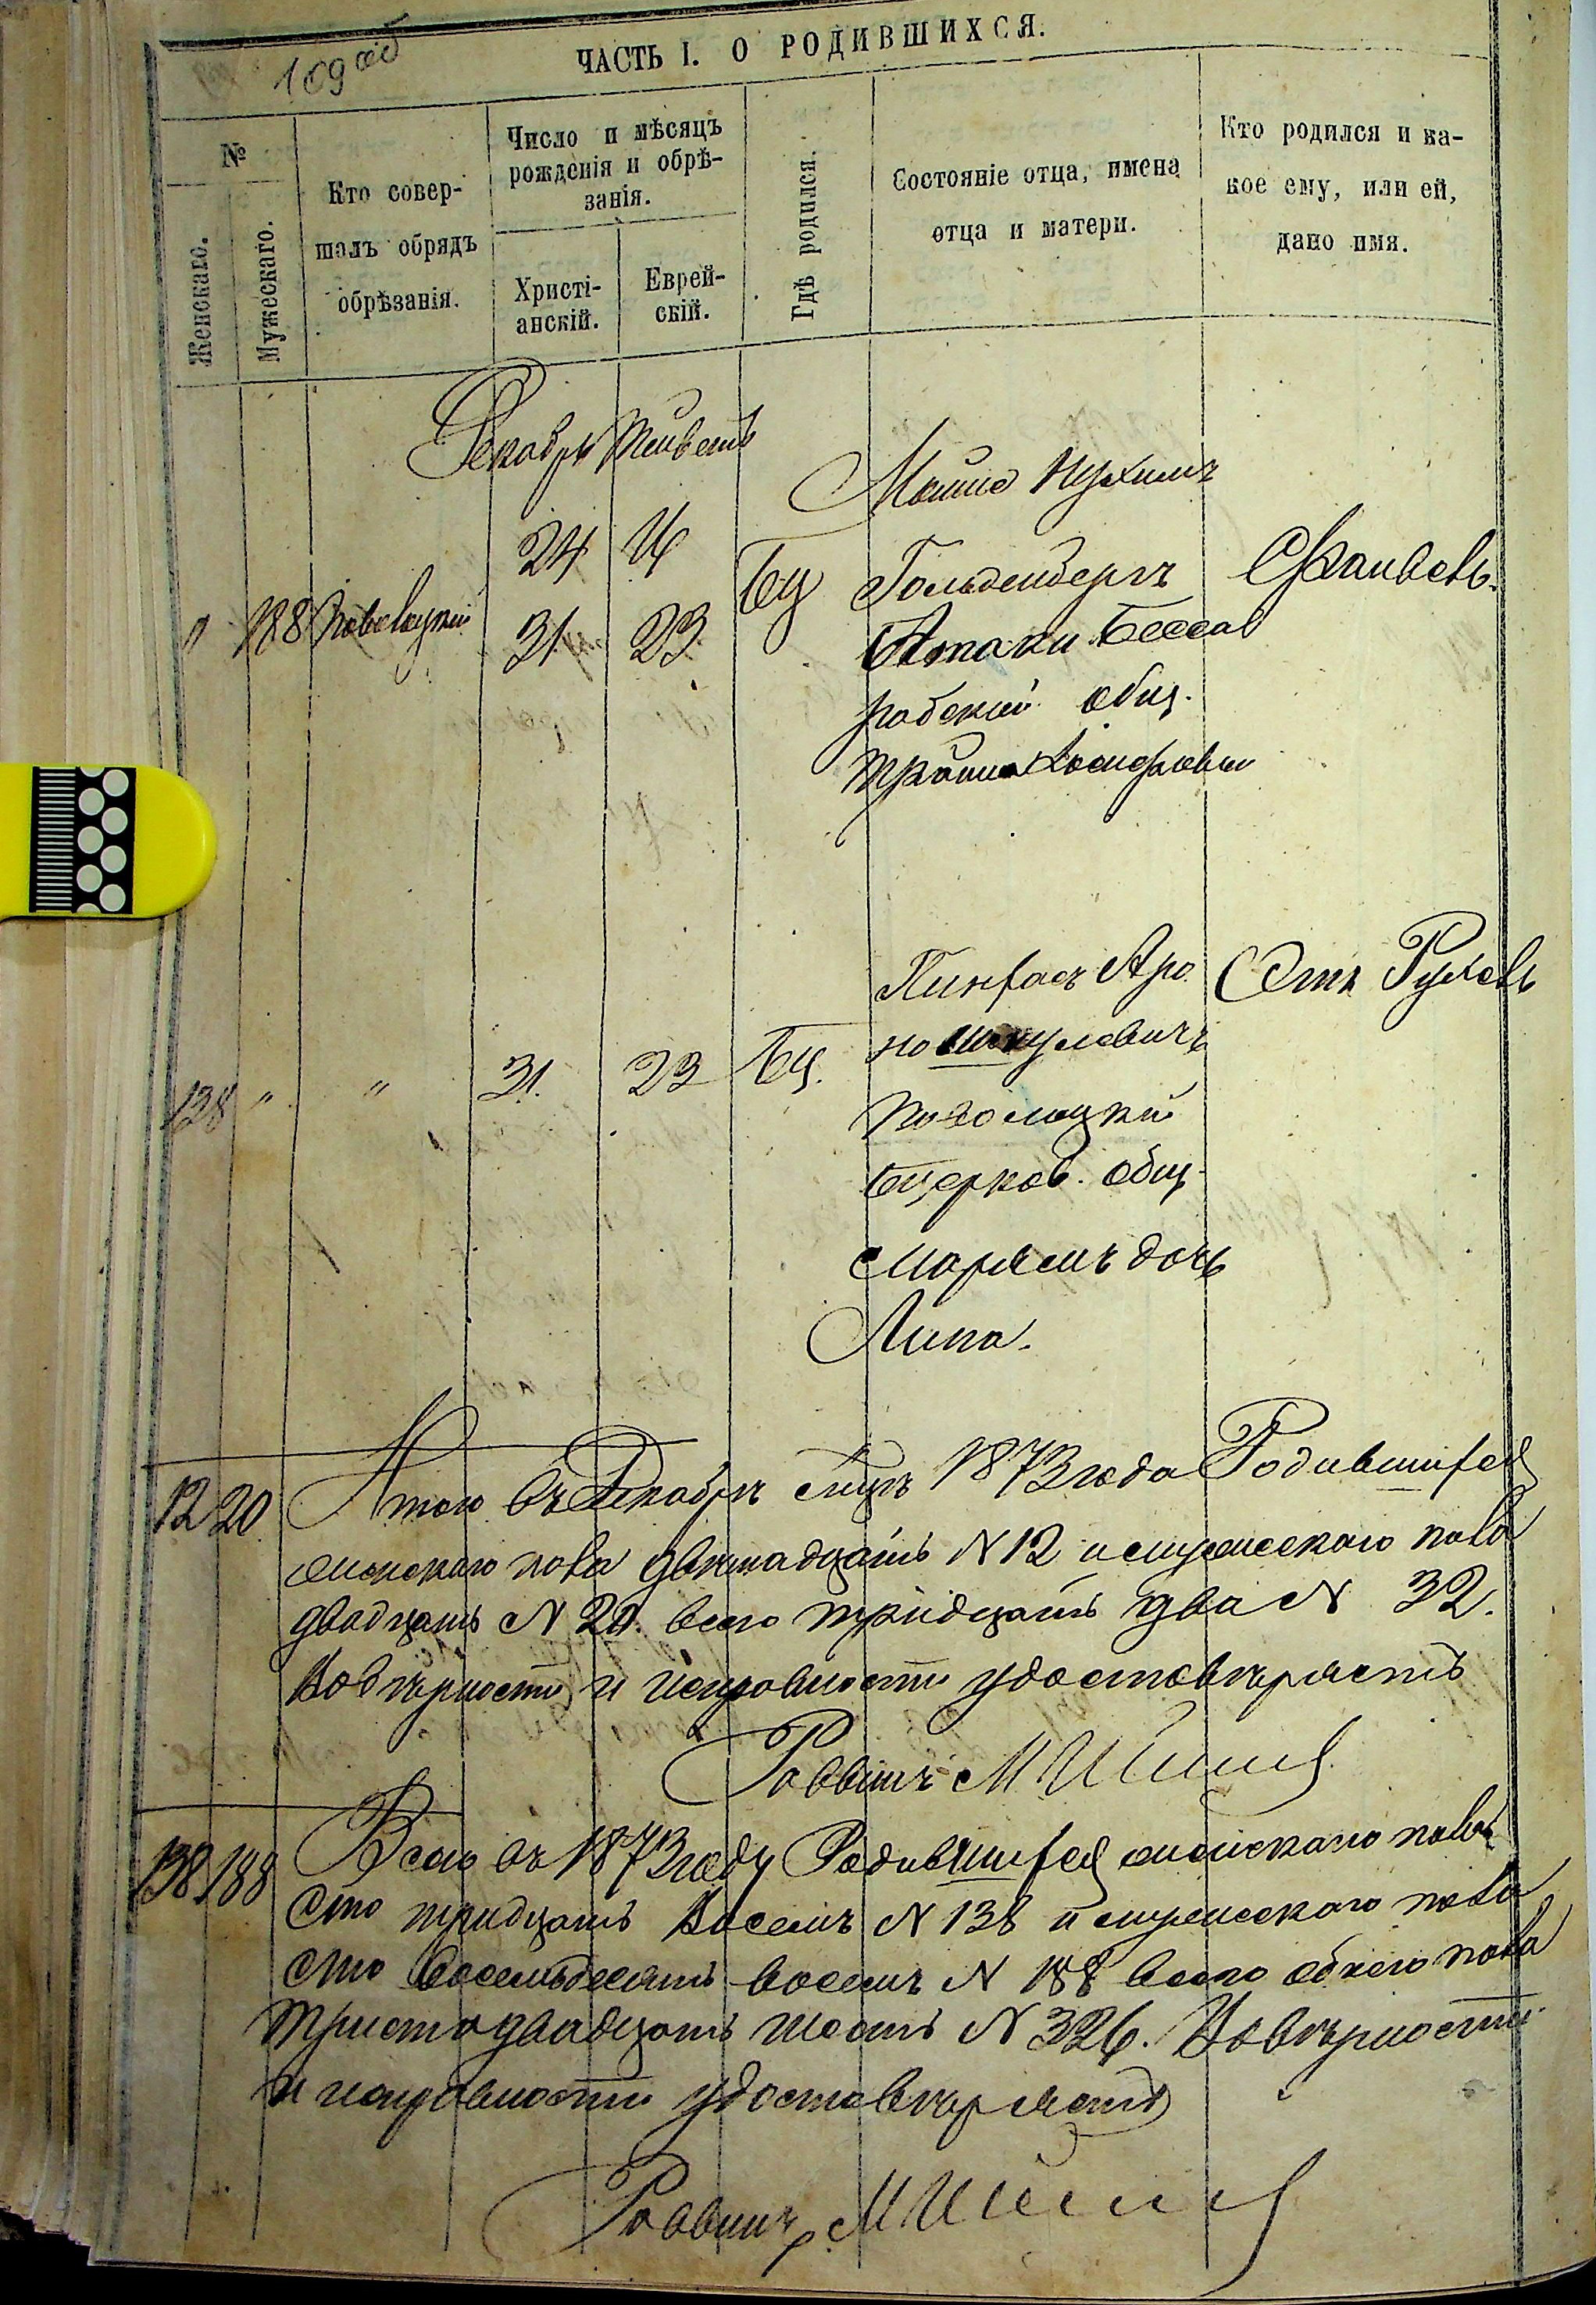 109 об
ЧАСТЬ I. О РОДИВШИХСЯ.
№
Женскаго.
Мужескаго.
Кто совер-
шалъ обрядъ
обрѣзанія.
Число и мѣсяцъ
рожденія и обрѣ-
занія.
Христі-
анскій.
Еврей-
скій.
Гдѣ родился.
Состояніе отца, имена
отца и матери.
Кто родился и ка-
кое ему, или ей,
дано имя.
Декабрь Тиветъ
" 188
24
31.
23
БЦ
Мошко Нухимъ
Гольденбергъ
Атаки Бессар
рабской общ.
138 " "
31.
23
БЦ.
Пинхас Аро
Поволоцкій
Бцерков. общ.
Марьямъ дочь
Липа.
Рухель
12 20 Итого въ Декабрѣ мцѣ 1873 года Родившихся
женскаго пола двѣнадцать N 12 и мужескаго пола
двадцать N 20. всего тридцать два N 32.
Вовѣрности и исправности удостовѣряетъ
Раввинъ М
138 188 Всего въ 1873 году Родившихся женскаго пола
сто тридцать восемь N 138 и мужескаго пола
сто восемьдесятъ восемъ N 188 всего обоего пола
триста двадцать шесть N 326. Вовѣрности
и исправности удостовѣряетъ
Раввинъ М